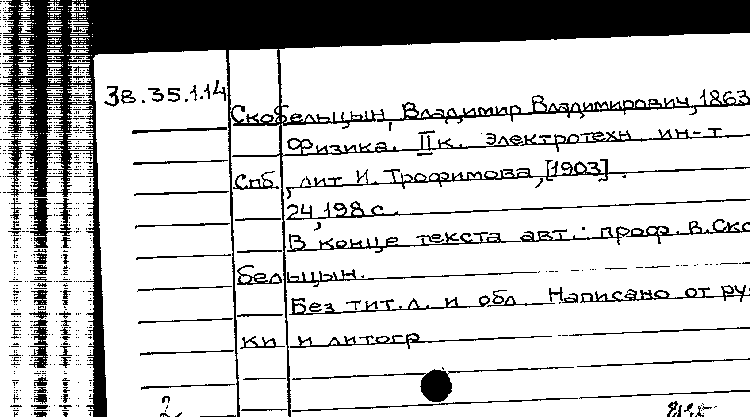 38.35.1.14
Скобельцын, Владимир Владимирович, 1863
Физика. II к. Электротехн ин-т.
Спб., лит И. Трофимова, [1903].
24, 198 с.
В конце текста авт.: проф. В. Ско
бельцын.
Без тит. л. и обл. Написано от ру
ки и литогр
2